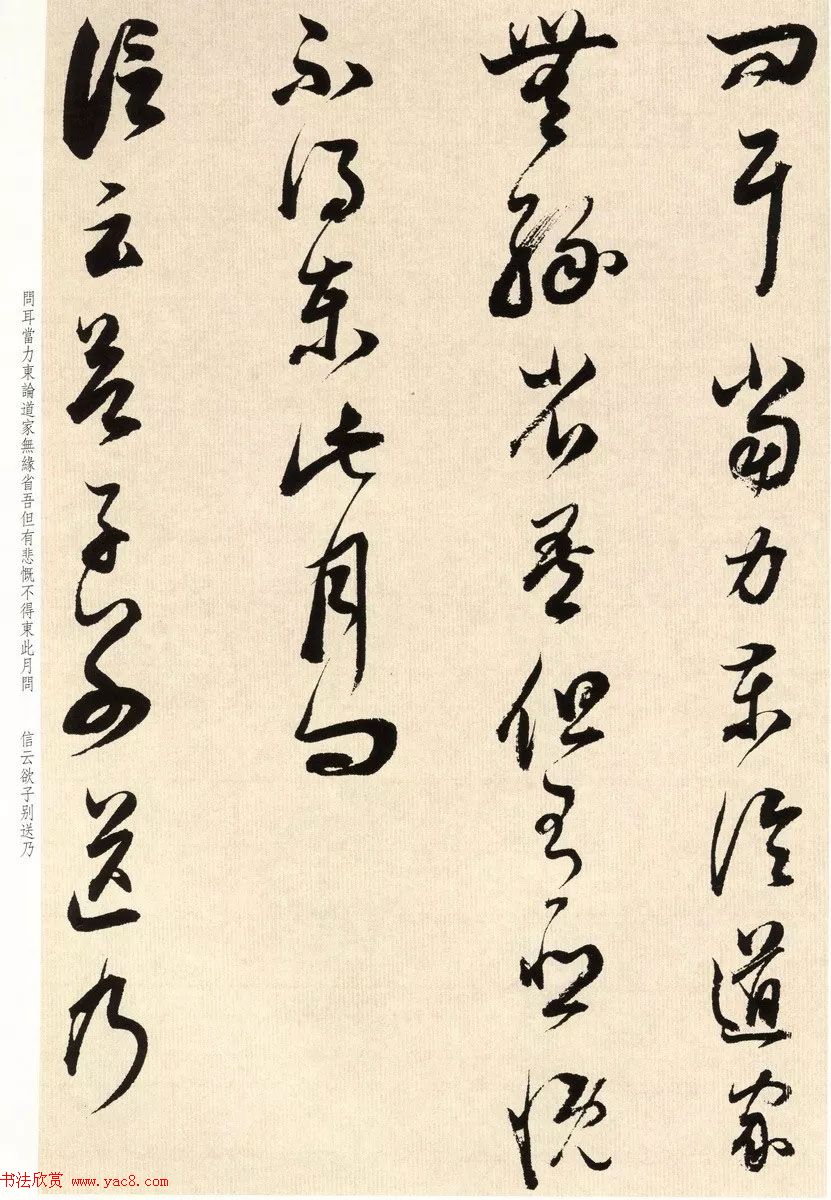 問耳當力東論道家
無緣省吾但有悲慨
不得東此月問
信云欲子別送乃
問耳當力東論道家無緣省吾但有悲慨不得東此月問　信云欲子别送乃
书法欣赏 www.yac8.com